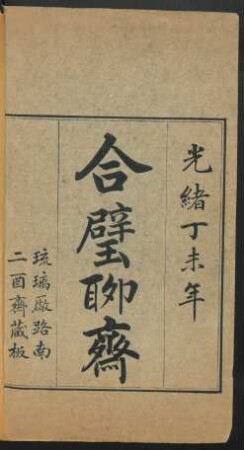 光緒丁未年
合璧聊齋
琉璃厰路南
二酉齋藏板